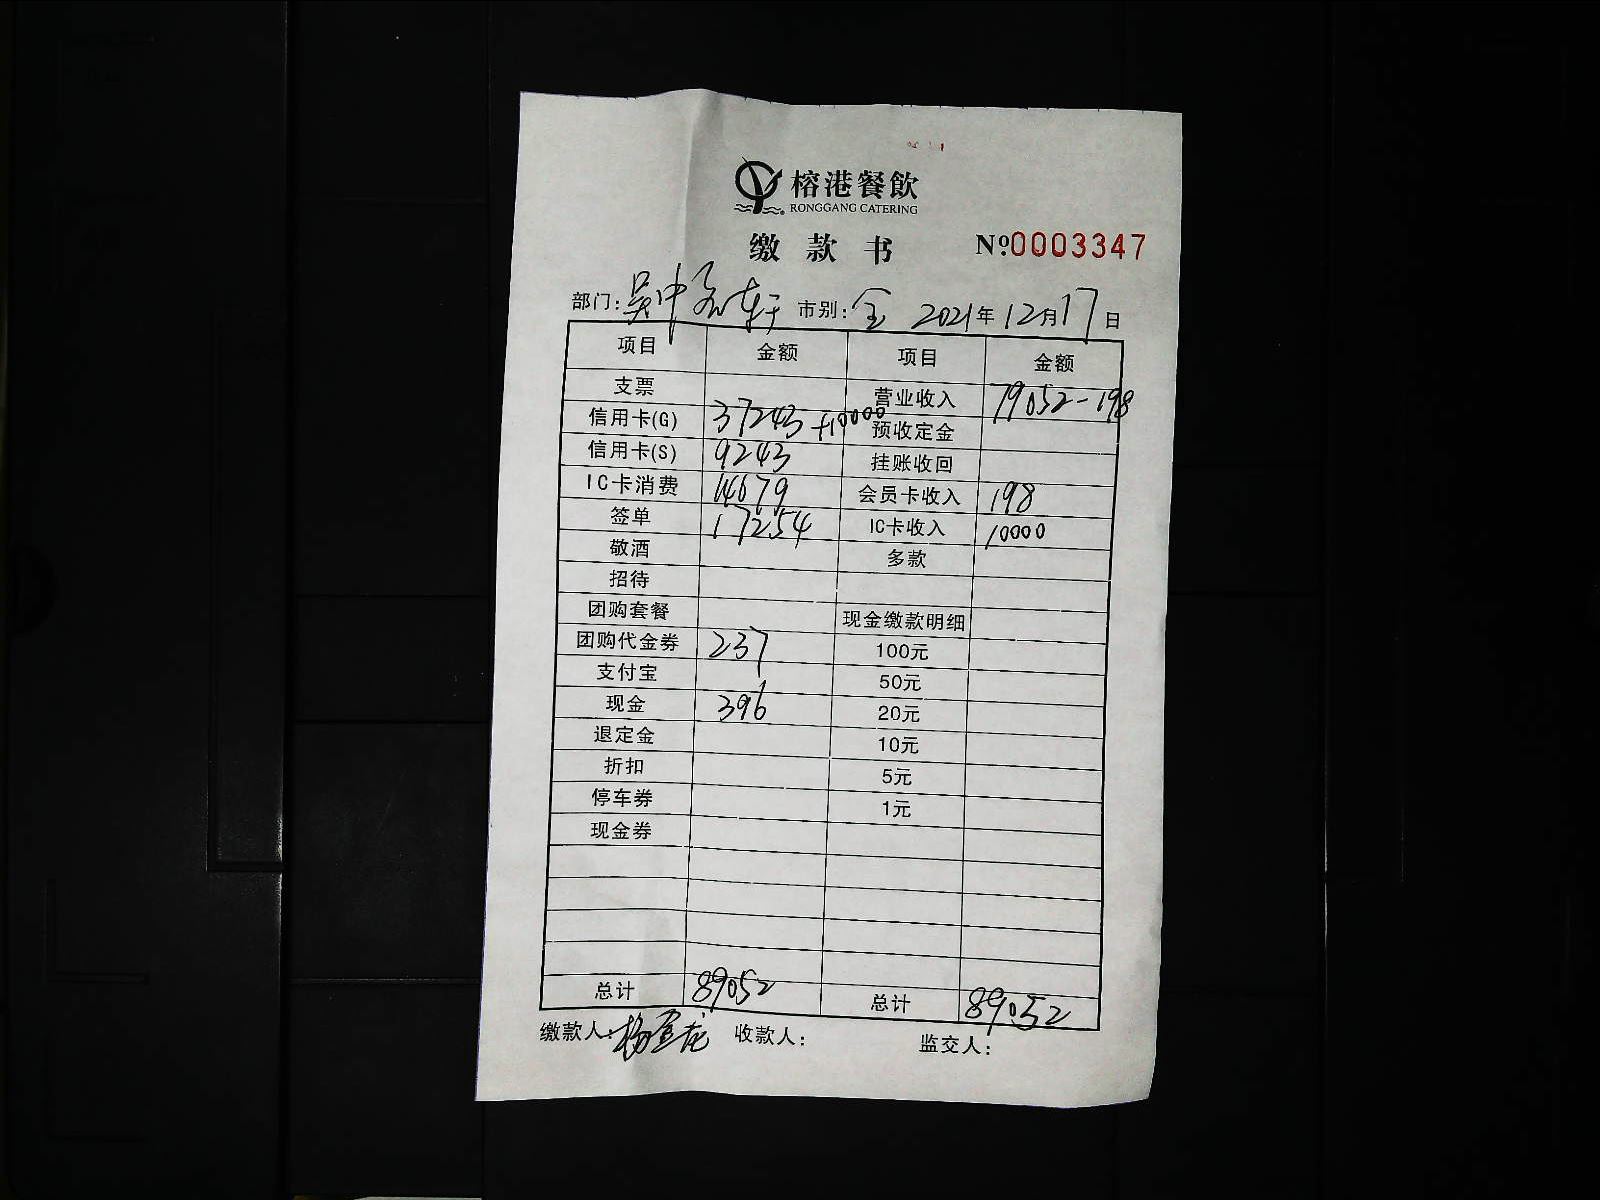 榕港餐飲
RONGGANG CATERING
缴款书 №0003347
部门: 吴中 轩 市别: 全 2021年12月17日
项目 金额 项目 金额
支票 营业收入 79052-198
信用卡(G) 37243+10000 预收定金
信用卡(S) 9243 挂账收回
IC卡消费 14679 会员卡收入 198
签单 17254 IC卡收入 10000
敬酒 多款
招待
团购套餐 现金缴款明细
团购代金券 237 100元
支付宝 50元
现金 396 20元
退定金 10元
折扣 5元
停车券 1元
现金券
总计 89052 总计 89052
缴款人: 杨 龙 收款人: 监交人: